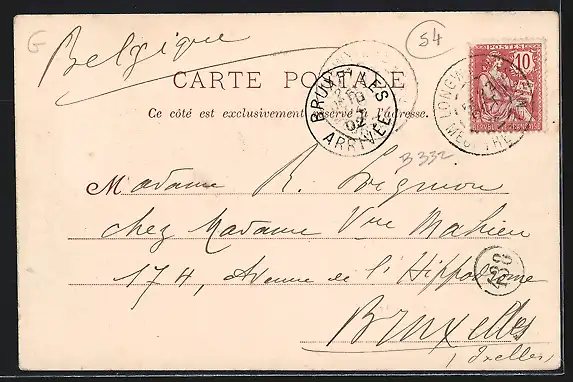 G
Belgique
54
POSTES
10
CARTE POSTALE
BRUXELLES
02
ARRIVÉE
LONGWY
Ce côté est exclusivement réservé à l'adresse.
B 332
Madame R.
chez Madame Vve Mahieu
174, Avenue de l'Hippodrome
Bruxelles
(Ixelles)